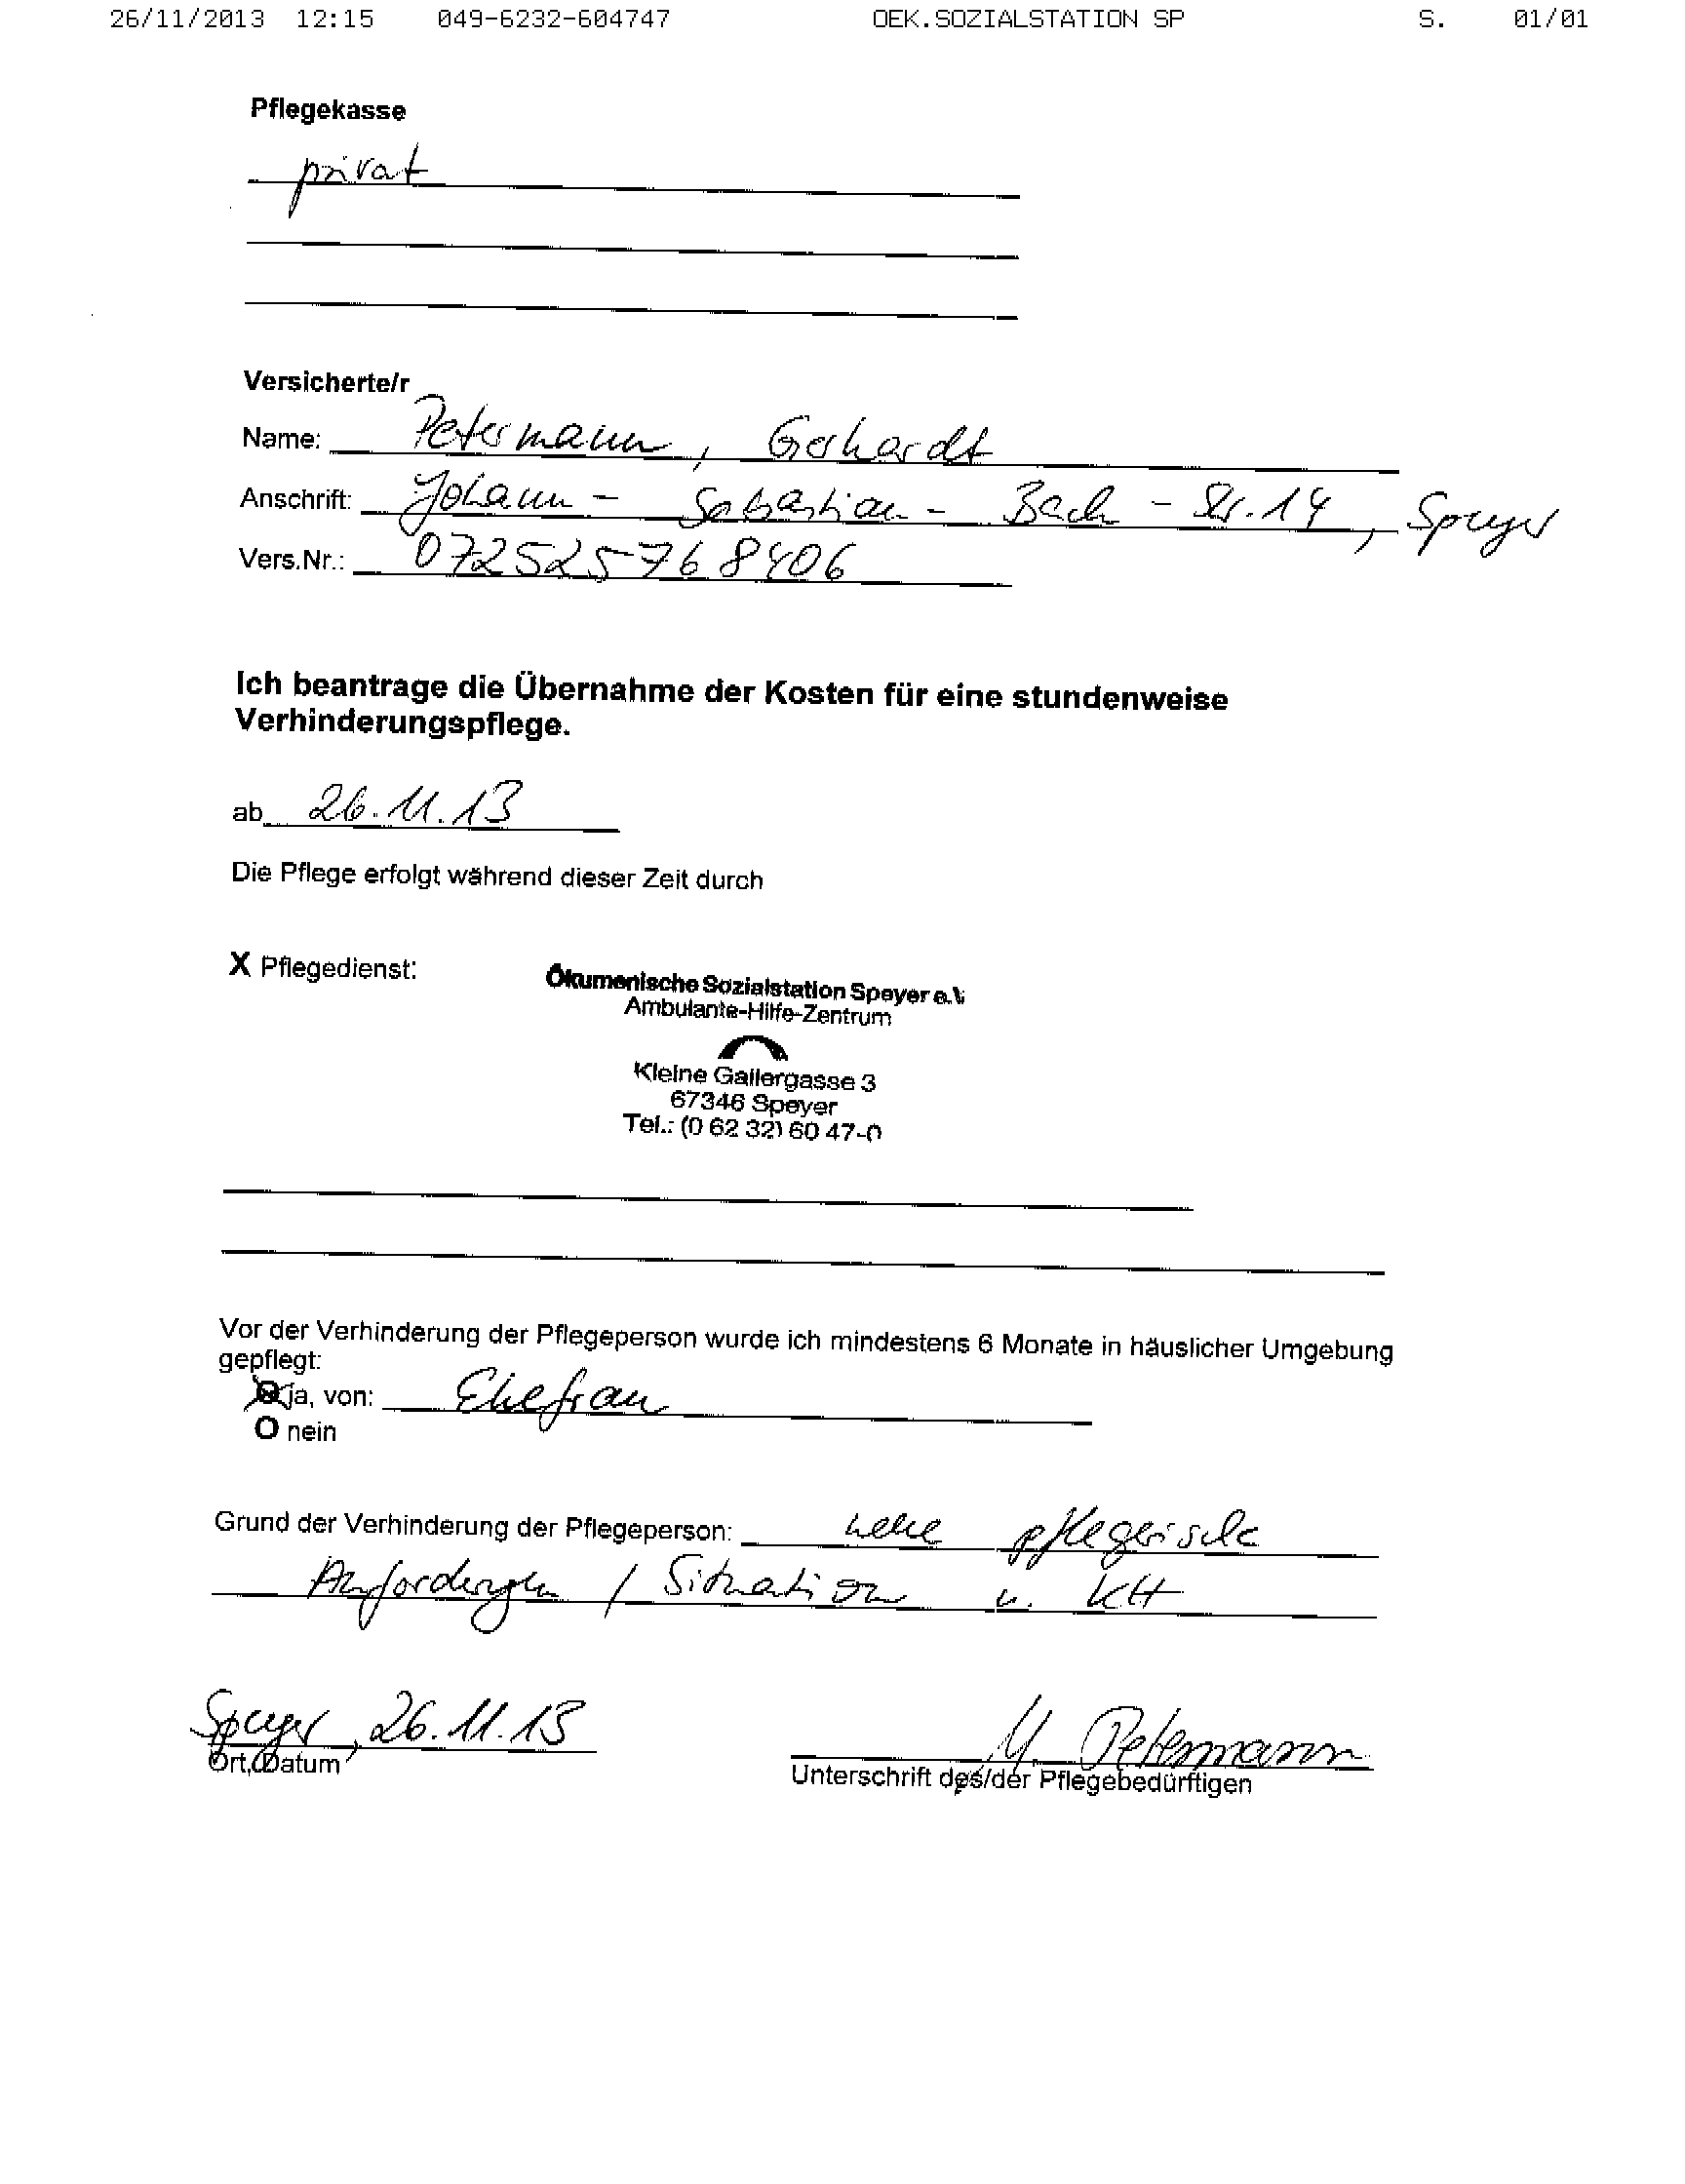 26/11/2013 12:15 049-6232-604747 OEK.SOZIALSTATION SP S. 01/01
Pflegekasse
privat
Versicherte/r
Name: Petermann, Gerhardt
Anschrift: Johann - Sebastian - Bach - Str. 14, Speyer
Vers.Nr.: 072525768406
Ich beantrage die Übernahme der Kosten für eine stundenweise
Verhinderungspflege.
ab 26.11.13
Die Pflege erfolgt während dieser Zeit durch
X Pflegedienst:
Ökumenische Sozialstation Speyer e.V.
Ambulante-Hilfe-Zentrum
Kleine Gailergasse 3
67346 Speyer
Tel.: (0 62 32) 60 47-0
Vor der Verhinderung der Pflegeperson wurde ich mindestens 6 Monate in häuslicher Umgebung
gepflegt:
O ja, von: Ehefrau
O nein
Grund der Verhinderung der Pflegeperson: neue pflegerische
Anforderungen / Situation u. KH
Speyer, 26.11.13
M. Petermann
Ort, Datum
Unterschrift des/der Pflegebedürftigen